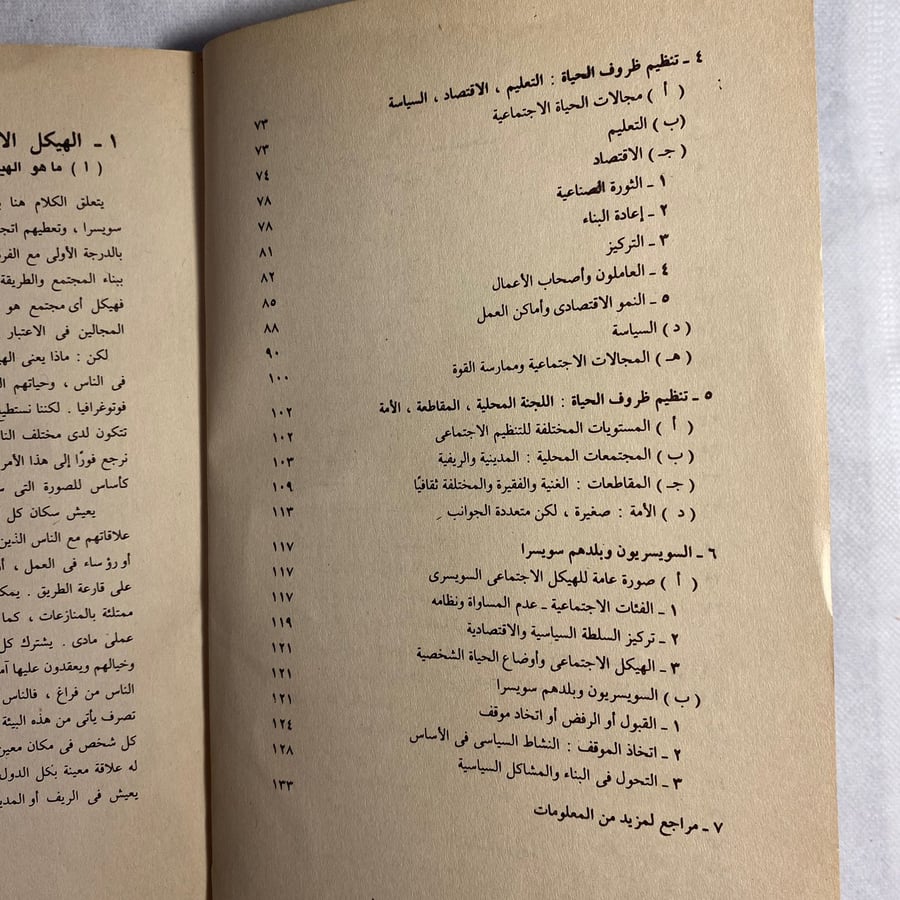 ٤ ـ تنظيم ظروف الحياة : التعليم ، الاقتصاد ، السياسة ٧٣
( أ ) مجالات الحياة الاجتماعية ٧٣
(ب) التعليم ٧٤
(جـ) الاقتصاد ٧٨
١ ـ الثورة الصناعية ٧٨
٢ ـ إعادة البناء ٨١
٣ ـ التركيز ٨٢
٤ ـ العاملون وأصحاب الأعمال ٨٥
٥ ـ النمو الاقتصادى وأماكن العمل ٨٨
( د ) السياسة ٩٠
(هـ) المجالات الاجتماعية وممارسة القوة ١٠٠
٥ ـ تنظيم ظروف الحياة : اللجنة المحلية ، المقاطعة ، الأمة ١٠٢
( أ ) المستويات المختلفة للتنظيم الاجتماعى ١٠٢
(ب) المجتمعات المحلية : المدينية والريفية ١٠٣
(جـ) المقاطعات : الغنية والفقيرة والمختلفة ثقافيًا ١٠٩
( د ) الأمة : صغيرة ، لكن متعددة الجوانب ١١٣
٦ ـ السويسريون وبلدهم سويسرا ١١٧
( أ ) صورة عامة للهيكل الاجتماعى السويسرى ١١٧
١ ـ الفئات الاجتماعية ـ عدم المساواة ونظامه ١١٧
٢ ـ تركيز السلطة السياسية والاقتصادية ١١٩
٣ ـ الهيكل الاجتماعى وأوضاع الحياة الشخصية ١٢١
(ب) السويسريون وبلدهم سويسرا ١٢١
١ ـ القبول أو الرفض أو اتخاد موقف ١٢١
٢ ـ اتخاذ الموقف : النشاط السياسى فى الأساس ١٢٤
٣ ـ التحول فى البناء والمشاكل السياسية ١٢٨
٧ ـ مراجع لمزيد من المعلومات ١٣٣
١ ـ الهيكل الا
( أ ) ما هو الهي
يتعلق الكلام هنا
سويسرا ، وتعطيهم اتج
بالدرجة الأولى مع الفر
ببناء المجتمع والطريقة
فهيكل أى مجتمع هو
المجالين فى الاعتبار
لكن : ماذا يعنى الهي
فى الناس ، وحياتهم ال
فوتوغرافيا . لكننا نستطيع
تتكون لدى مختلف النا
نرجع فورًا إلى هذا الأمر
كأساس للصورة التى س
يعيش سكان كل
علاقاتهم مع الناس الذين
أو رؤساء فى العمل ، أ
على قارعة الطريق . يمك
ممتلئة بالمنازعات ، كما
عملى مادى . يشترك كل
وخيالهم ويعقدون عليها آم
الناس من فراغ ، فالناس
تصرف يأتى من هذه البيئة
كل شخص فى مكان معين
له علاقة معينة بكل الدول
يعيش فى الريف أو المدي